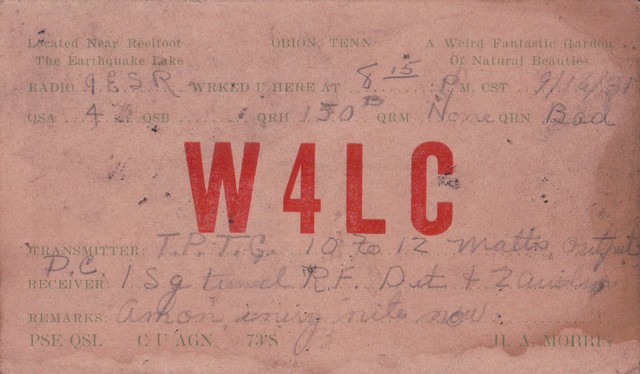 Located Near Reelfoot OBION, TENN A Weird Fantastic Garden
The Earthquake Lake Of Natural Beauties
RADIO 9ESR WRKED U HERE AT 8 15 P M, CST 9/14/31
QSA 4 QSB QRH 150 QRM None QRN Bad
W4LC
TRANSMITTER: T.P.T.G. 10 to 12 Watts output
D.C.
RECEIVER: 1 Sg tuned R.F. Det & 2 audio
REMARKS: Am on every nite now
PSE QSL C U AGN 73'S H. A. MORRIS